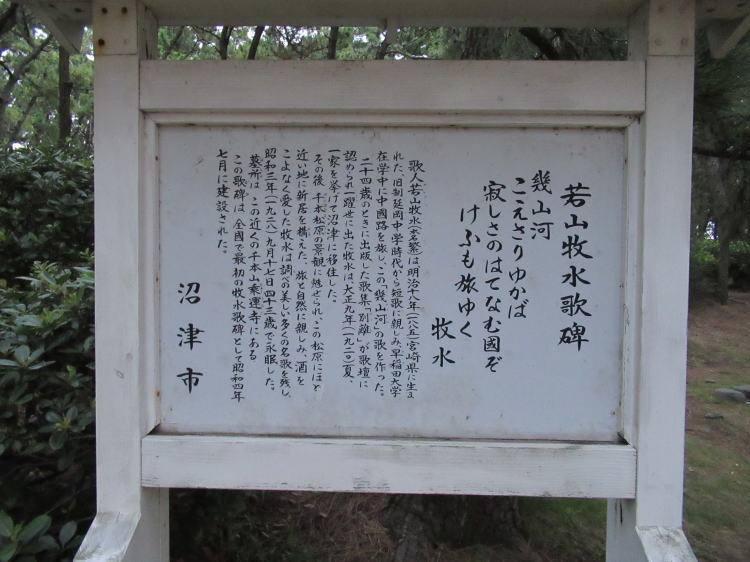 若山牧水歌碑
幾山河
こえさりゆかば
寂しさのはてなむ國ぞ
けふも旅ゆく
牧水
歌人若山牧水(本名繁)は明治十八年(一八八五)宮崎県に生ま
れた、旧制延岡中学時代から短歌に親しみ、早稲田大学
在学中に中國路を旅し、この「幾山河」の歌を作った。
二十四歳のときに出版した歌集「別離」が歌壇に
認められ一躍世に出た牧水は大正九年(一九二〇)夏、
一家を挙げて沼津に移住した。
その後 千本松原の景観に魅せられ、この松原にほど
近い地に新居を構えた、旅と自然に親しみ、酒を
こよなく愛した牧水は調べの美しい多くの名歌を残し、
昭和三年(一九二八)九月十七日四十三歳で永眠した。
墓所は この近くの千本山乗運寺にある
この歌碑は、全國で最初の牧水歌碑として昭和四年
七月に建設された。
沼津市